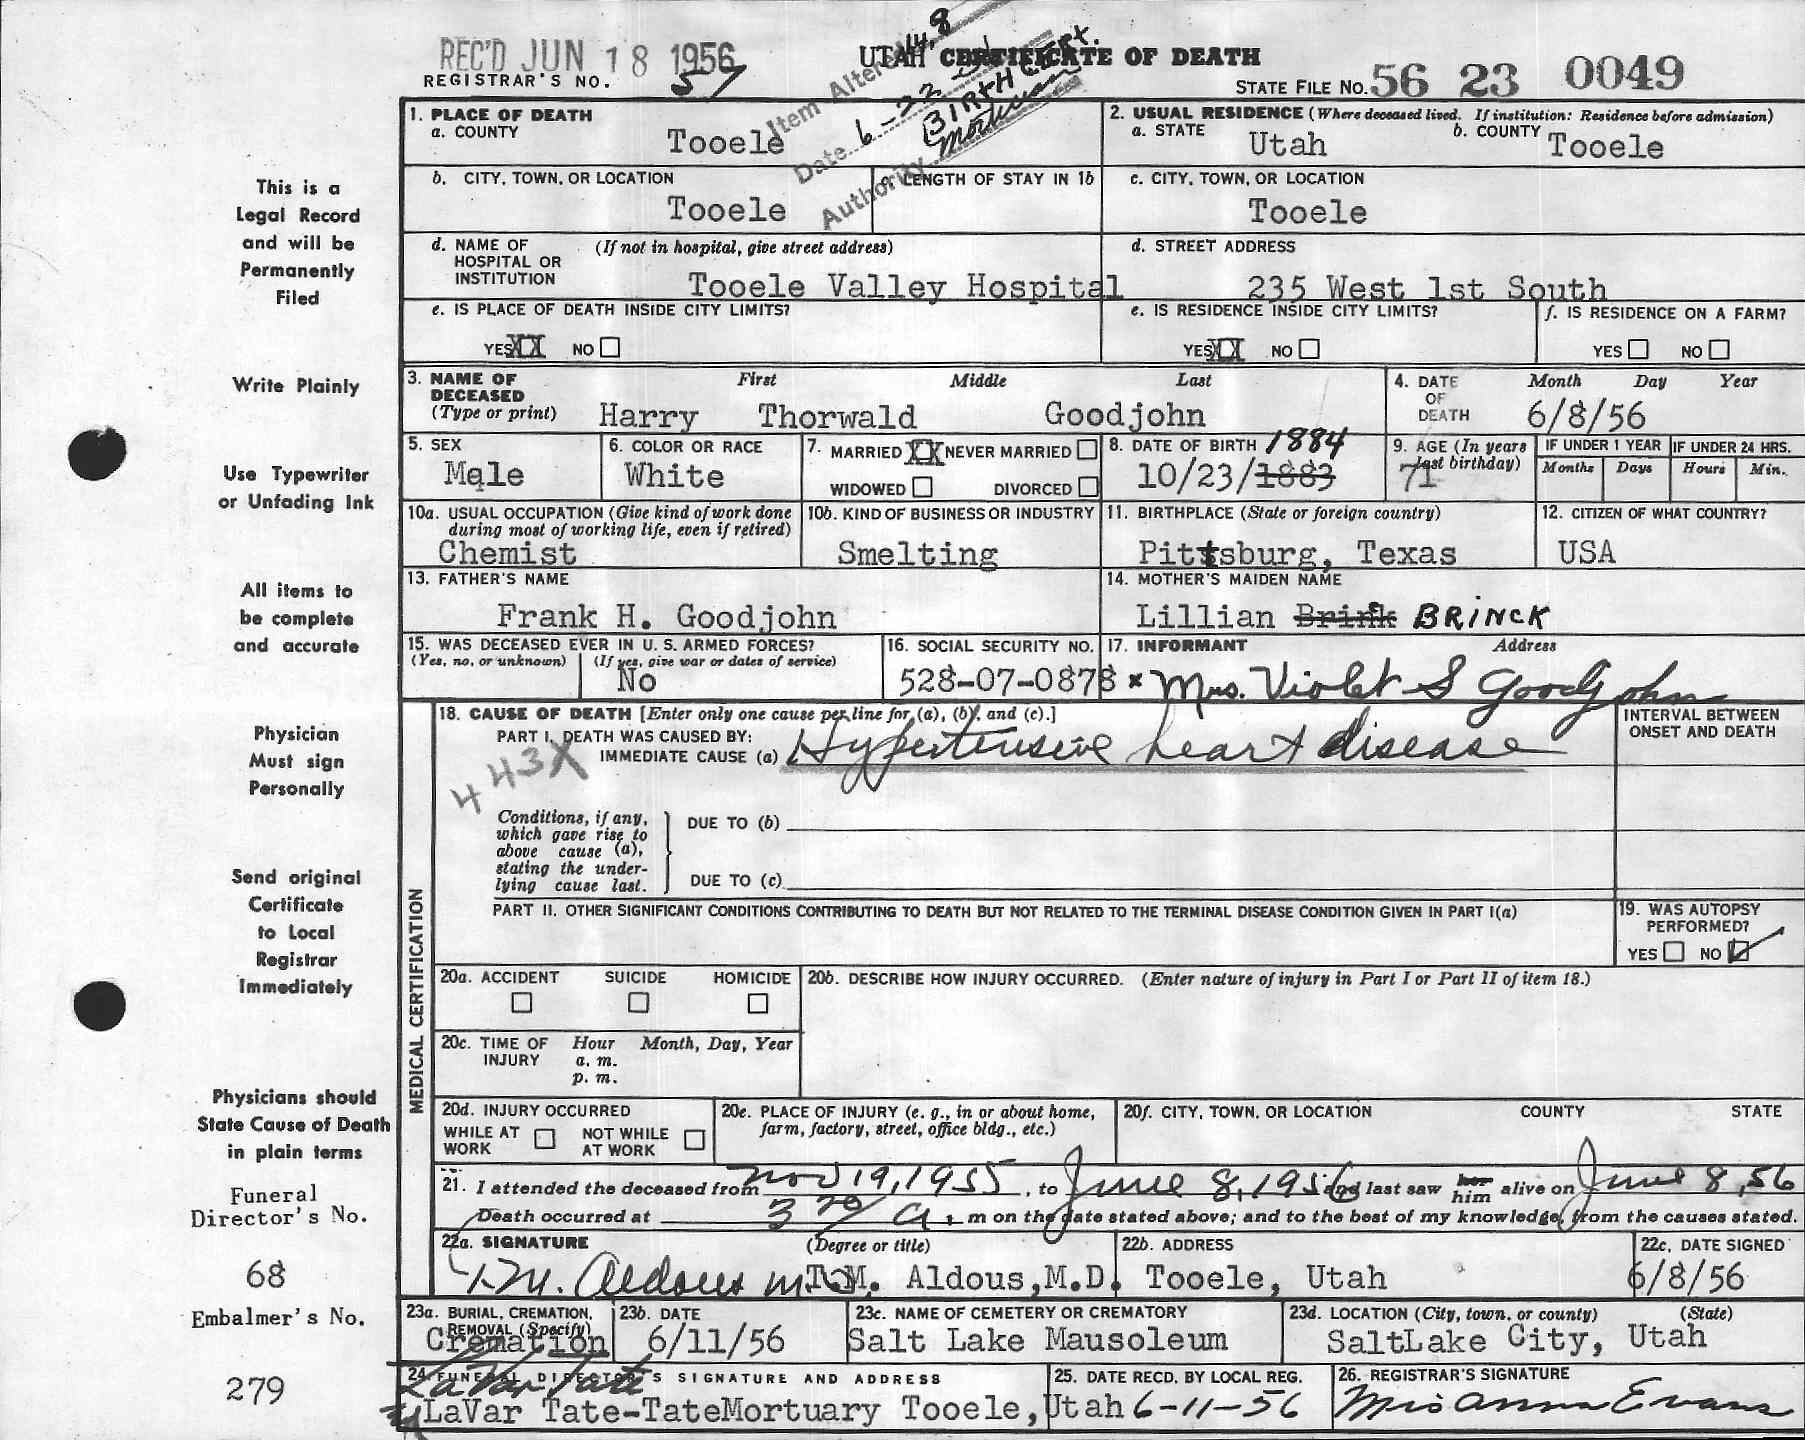 REC'D JUN 18 1956
UTAH CERTIFICATE OF DEATH
REGISTRAR'S NO. 57
STATE FILE NO. 56 23 0049
Item Altered 14, 8
Date 6-22-51
Authority BIRTH CERT.
Mortician
1. PLACE OF DEATH
a. COUNTY
Tooele
2. USUAL RESIDENCE (Where deceased lived. If institution: Residence before admission)
a. STATE Utah b. COUNTY Tooele
b. CITY, TOWN, OR LOCATION
Tooele
c. LENGTH OF STAY IN 1b
c. CITY, TOWN, OR LOCATION
Tooele
d. NAME OF HOSPITAL OR INSTITUTION
(If not in hospital, give street address)
Tooele Valley Hospital
d. STREET ADDRESS
235 West 1st South
e. IS PLACE OF DEATH INSIDE CITY LIMITS?
YES XX NO
e. IS RESIDENCE INSIDE CITY LIMITS?
YES XX NO
f. IS RESIDENCE ON A FARM?
YES NO
3. NAME OF DECEASED
(Type or print)
First Middle Last
Harry Thorwald Goodjohn
4. DATE OF DEATH
Month Day Year
6/8/56
5. SEX
Male
6. COLOR OR RACE
White
7. MARRIED XX NEVER MARRIED
WIDOWED DIVORCED
8. DATE OF BIRTH 1884
10/23/1883
9. AGE (In years last birthday)
71
IF UNDER 1 YEAR IF UNDER 24 HRS.
Months Days Hours Min.
10a. USUAL OCCUPATION (Give kind of work done during most of working life, even if retired)
Chemist
10b. KIND OF BUSINESS OR INDUSTRY
Smelting
11. BIRTHPLACE (State or foreign country)
Pittsburg, Texas
12. CITIZEN OF WHAT COUNTRY?
USA
13. FATHER'S NAME
Frank H. Goodjohn
14. MOTHER'S MAIDEN NAME
Lillian Brink BRINCK
15. WAS DECEASED EVER IN U. S. ARMED FORCES?
(Yes, no, or unknown) (If yes, give war or dates of service)
No
16. SOCIAL SECURITY NO.
528-07-0878
17. INFORMANT Address
x Mrs. Violet S Goodjohn
18. CAUSE OF DEATH [Enter only one cause per line for (a), (b), and (c).]
PART I. DEATH WAS CAUSED BY:
IMMEDIATE CAUSE (a) Hypertensive heart disease
443X
INTERVAL BETWEEN ONSET AND DEATH
Conditions, if any, which gave rise to above cause (a), stating the underlying cause last.
DUE TO (b)
DUE TO (c)
PART II. OTHER SIGNIFICANT CONDITIONS CONTRIBUTING TO DEATH BUT NOT RELATED TO THE TERMINAL DISEASE CONDITION GIVEN IN PART I(a)
19. WAS AUTOPSY PERFORMED?
YES NO
20a. ACCIDENT SUICIDE HOMICIDE
20b. DESCRIBE HOW INJURY OCCURRED. (Enter nature of injury in Part I or Part II of item 18.)
20c. TIME OF INJURY
Hour Month, Day, Year
a. m.
p. m.
20d. INJURY OCCURRED
WHILE AT WORK NOT WHILE AT WORK
20e. PLACE OF INJURY (e. g., in or about home, farm, factory, street, office bldg., etc.)
20f. CITY, TOWN, OR LOCATION COUNTY STATE
21. I attended the deceased from Nov 19, 1955, to June 8, 1956 and last saw her him alive on June 8, 56
Death occurred at 3 20 a. m on the date stated above; and to the best of my knowledge, from the causes stated.
22a. SIGNATURE (Degree or title)
T.M. Aldous M.D. T.M. Aldous, M.D.
22b. ADDRESS
Tooele, Utah
22c. DATE SIGNED
6/8/56
23a. BURIAL, CREMATION, REMOVAL (Specify)
Cremation
23b. DATE
6/11/56
23c. NAME OF CEMETERY OR CREMATORY
Salt Lake Mausoleum
23d. LOCATION (City, town, or county) (State)
SaltLake City, Utah
24. FUNERAL DIRECTOR'S SIGNATURE AND ADDRESS
LaVar Tate
LaVar Tate-TateMortuary Tooele, Utah
25. DATE RECD. BY LOCAL REG.
6-11-56
26. REGISTRAR'S SIGNATURE
Mrs Anna Evans
MEDICAL CERTIFICATION
This is a
Legal Record
and will be
Permanently
Filed
Write Plainly
Use Typewriter
or Unfading Ink
All items to
be complete
and accurate
Physician
Must sign
Personally
Send original
Certificate
to Local
Registrar
Immediately
Physicians should
State Cause of Death
in plain terms
Funeral
Director's No.
68
Embalmer's No.
279